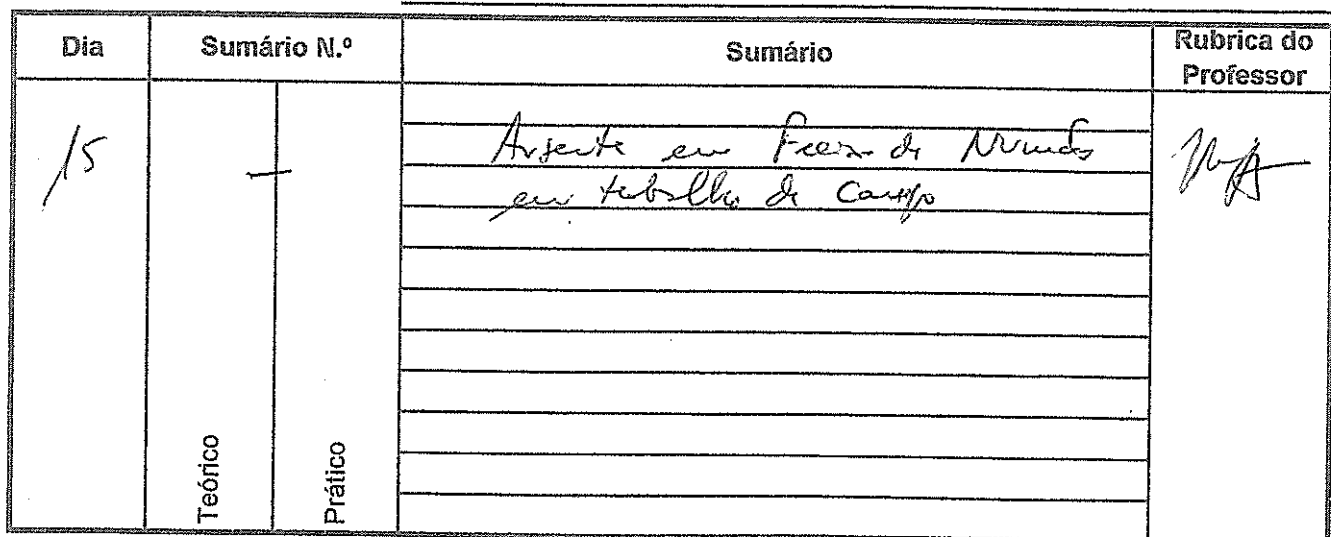 Dia Sumário N.º Sumário Rubrica do Professor
15 — Ausente em Freixo de Numão
em trabalho de Campo
Teórico Prático